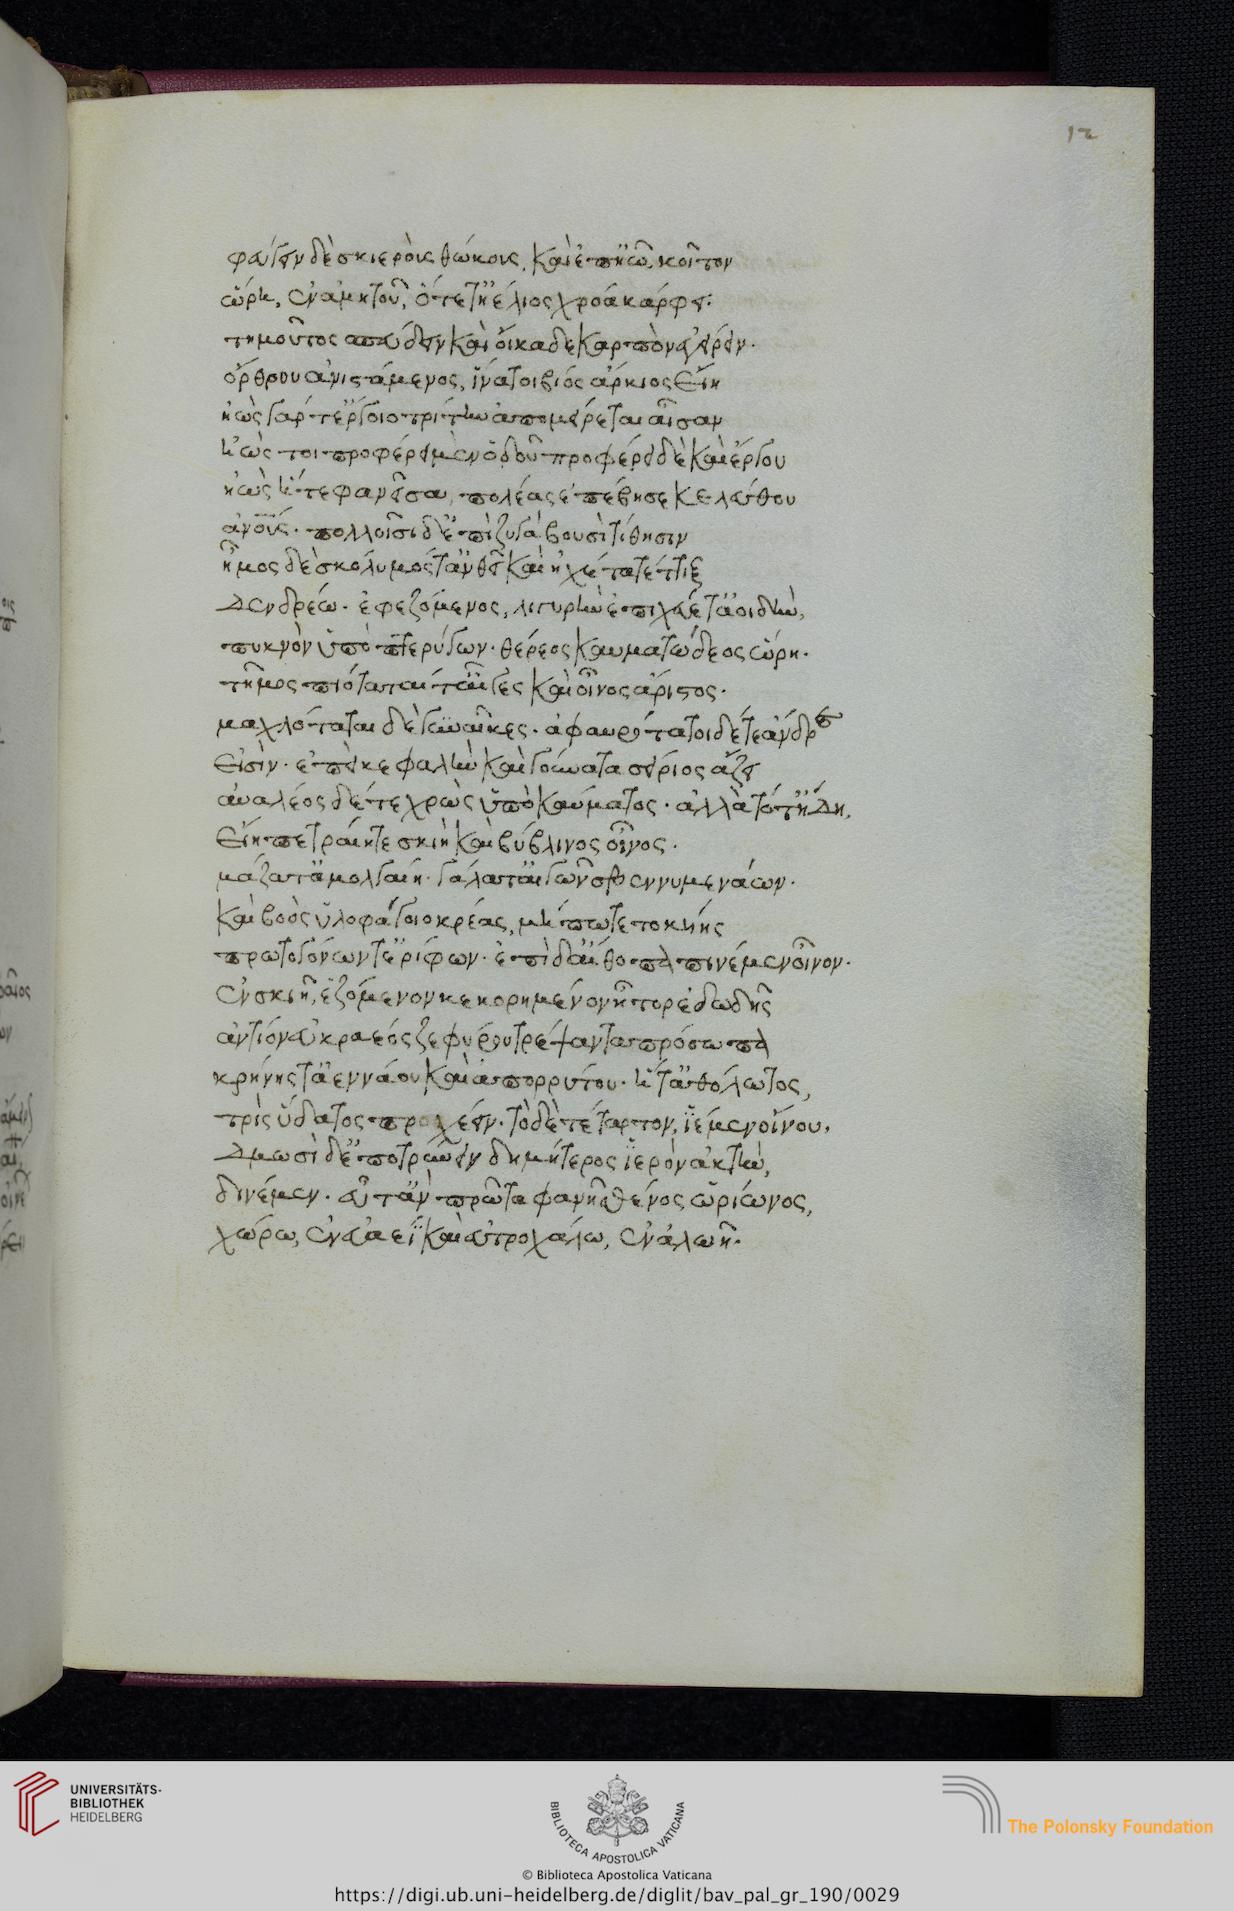 12
φεύγειν δὲ σκιεροὺς θώκους, καὶ ἐπ' ἠῶ κοῖτον
ὥρη, ἐν ἀμητοῦ, ὅτε τ' ἠέλιος χρόα κάρφει·
τημοῦτος σπεύδειν καὶ οἴκαδε καρπὸν ἀγείρειν.
ὄρθρου ἀνιστάμενος, ἵνα τοι βιός ἄρκιος εἴη
ἠὼς γάρ τ' ἔργοιο τρίτην ἀπομείρεται αἶσαν
ἠώς τοι προφέρει μὲν ὁδοῦ προφέρει δὲ καὶ ἔργου
ἠὼς ἥτε φανεῖσα, πολέας ἐπέβησε κελεύθου
ἀνοὺς. πολλοῖσι δ' ἐπὶ ζυγὰ βουσὶ τίθησιν
ἦμος δὲ σκόλυμός τ' ἀνθεῖ καὶ ἠχέτα τέττιξ
δενδρέω. ἐφεζόμενος, λιγυρὴν ἐπιχεύετ' ἀοιδὴν,
πυκνὸν ὑπὸ πτερύγων. θέρεος καυματώδεος ὥρη.
τῆμος πιόταταί τ' αἶγες καὶ οἶνος ἄριστος.
μαχλόταται δὲ γυναῖκες. ἀφαυρότατοι δέ τε ἄνδρες
εἰσὶν. ἐπεὶ κεφαλὴν καὶ γούνατα σείριος ἄζει
αὐαλέος δέ τε χρὼς ὑπὸ καύματος. ἀλλὰ τότ' ἤδη,
εἴη πετραίη τε σκιὴ καὶ βύβλινος οἶνος.
μάζα τ' ἀμολγαίη. γάλα τ' αἰγῶν σβεννυμενάων.
καὶ βοὸς ὑλοφάγοιο κρέας, μή πω τετοκυίης
πρωτογόνων τ' ἐρίφων. ἐπὶ δ' αἴθοπα πινέμεν οἶνον.
ἐν σκιῆ, ἑζόμενον κεκορημένον ἦτορ ἐδωδῆς
ἀντίον εὐκραέος ζεφύρου τρέψαντα πρόσωπα
κρήνης τ' ἀεννάου καὶ ἀπορρύτου. ἥτ' ἀθόλωτος,
τρὶς ὕδατος προχέειν. τὸ δὲ τέταρτον, ἱέμεν οἴνου.
δμωσὶ δ' ἐποτρύνειν δημήτερος ἱερὸν ἀκτὴν,
δινέμεν. εὖτ' ἂν πρῶτα φανῆ σθένος ὠρίωνος,
χώρω, ἐν εὐαεῖ καὶ εὐτροχάλω, ἐν ἀλωῆ.
UNIVERSITÄTS-
BIBLIOTHEK
HEIDELBERG
BIBLIOTECA APOSTOLICA VATICANA
The Polonsky Foundation
© Biblioteca Apostolica Vaticana
https://digi.ub.uni-heidelberg.de/diglit/bav_pal_gr_190/0029